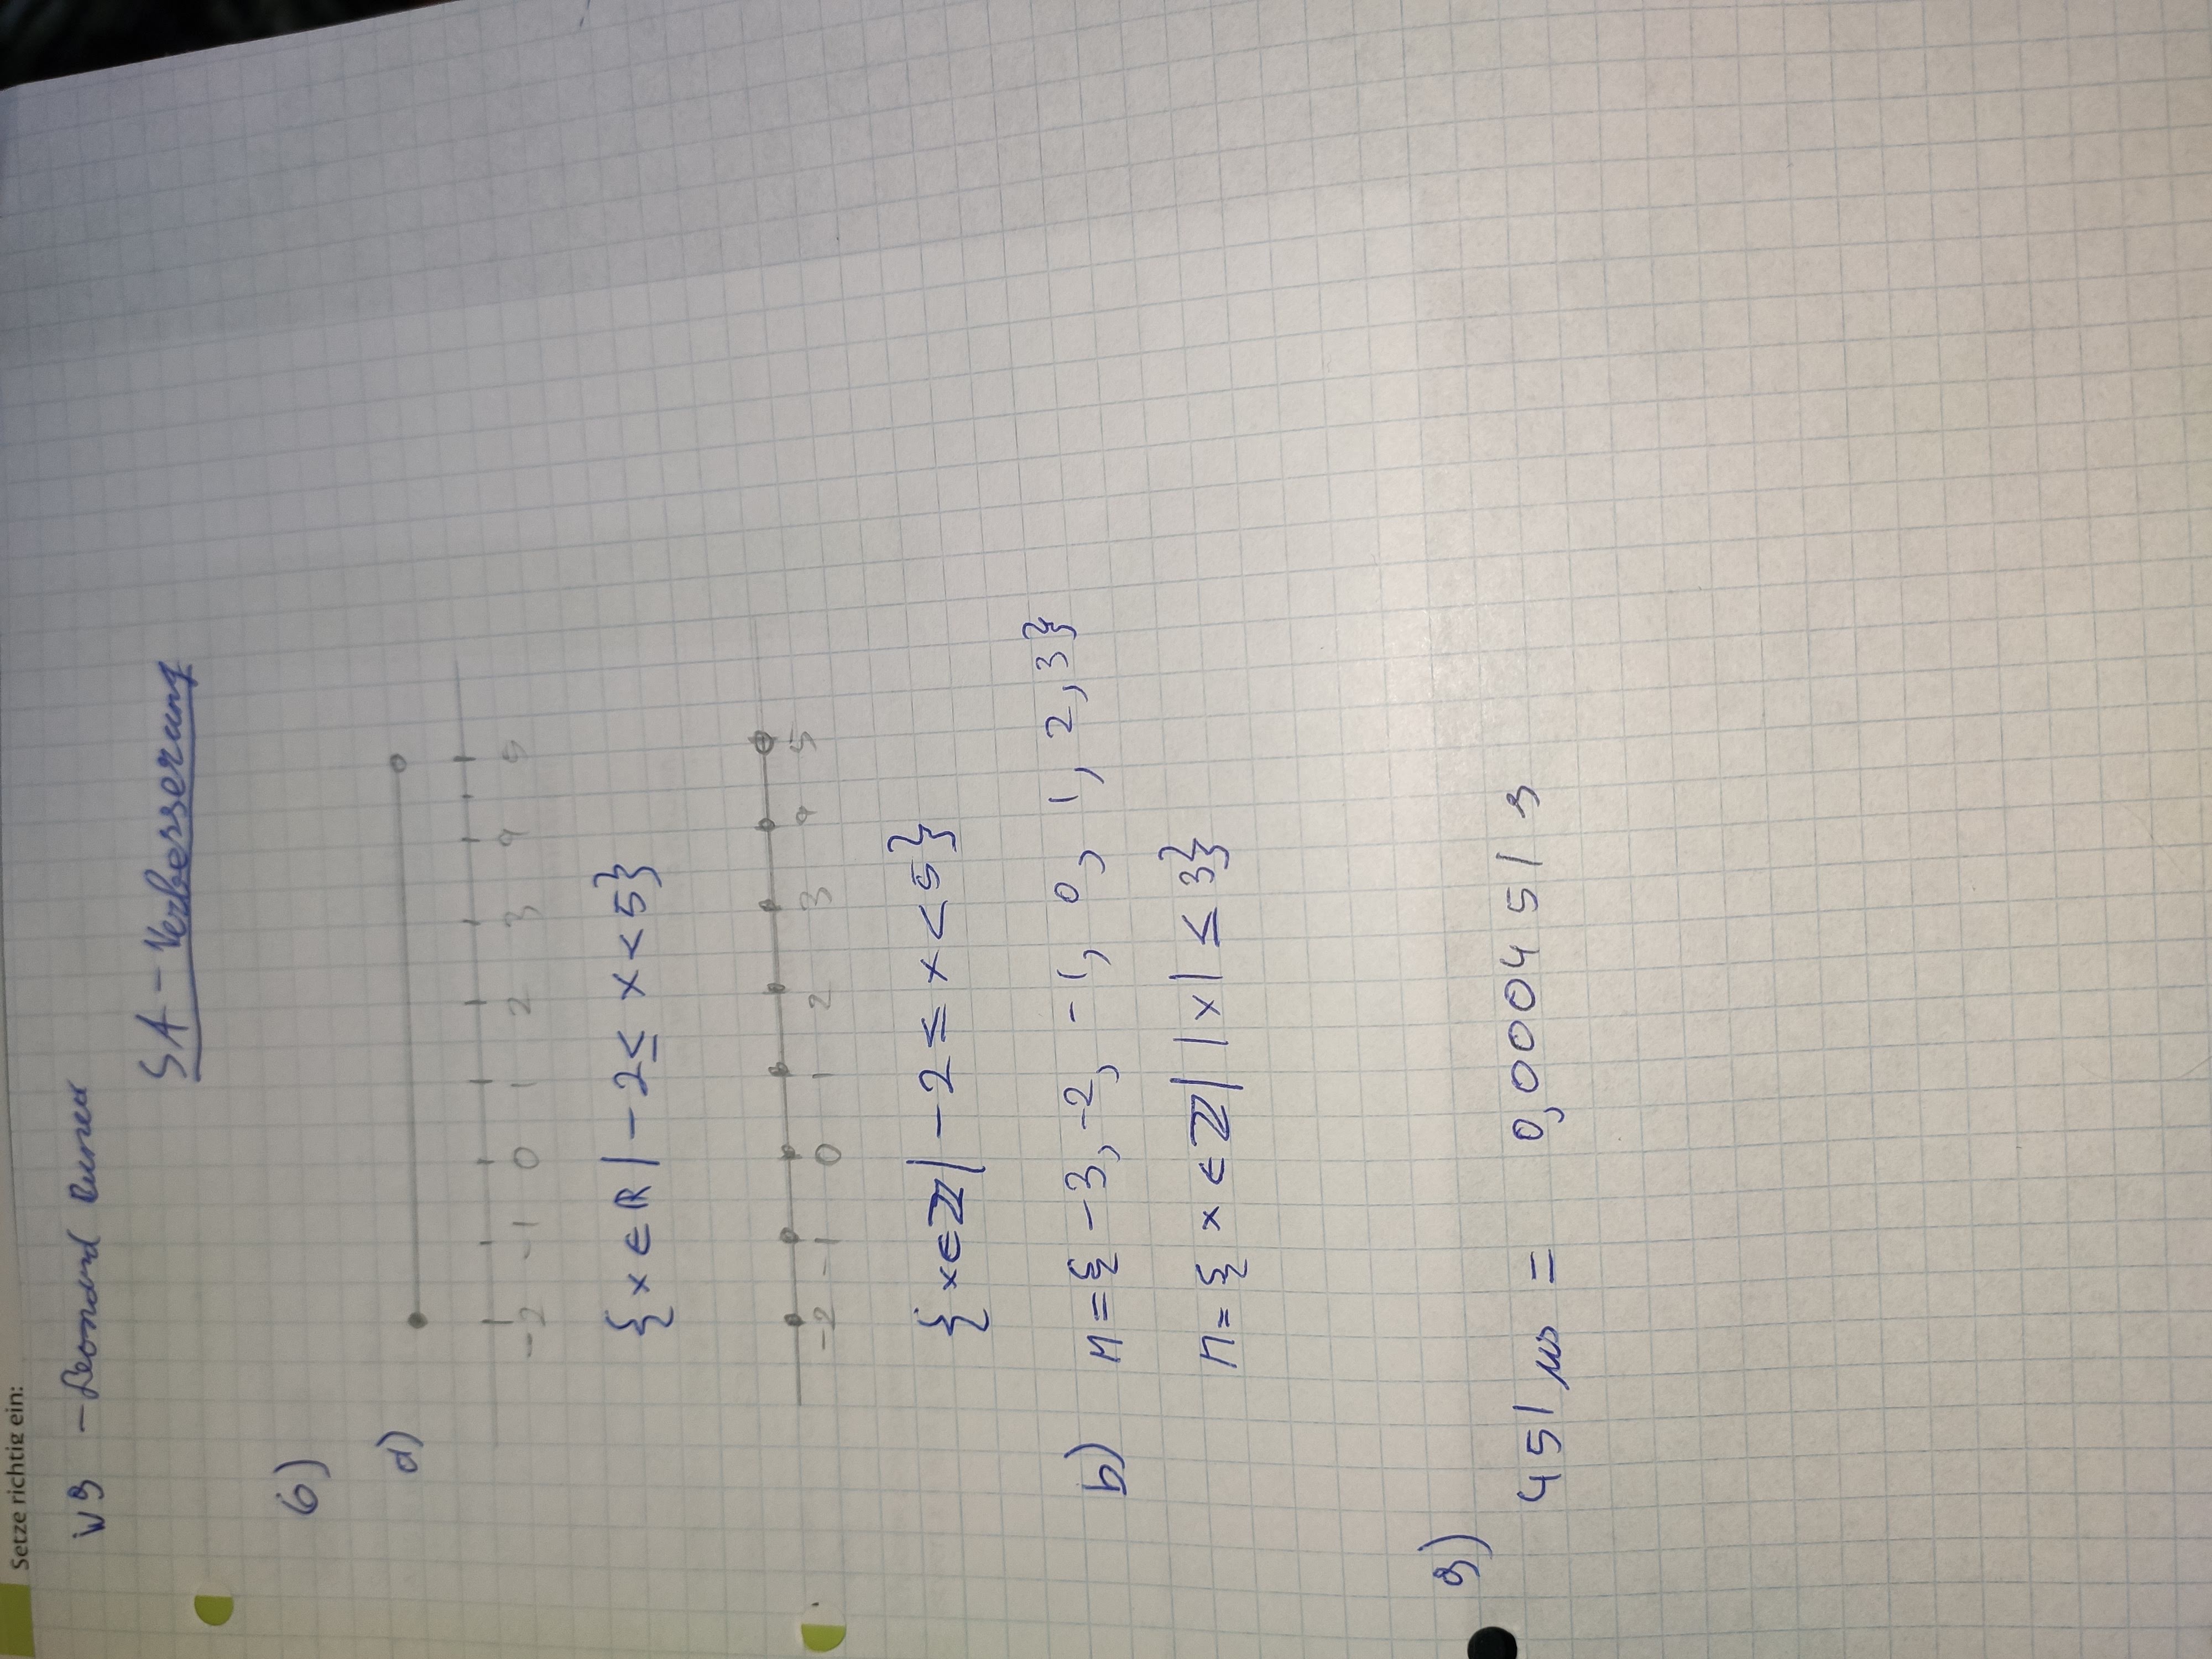 Setze richtig ein:
W9 - Leonard
SA - Verbesserung
6)
d)
-2 -1 0 1 2 3 4 5
{x∈ℝ | -2 ≤ x < 5}
-2 -1 0 1 2 3 4 5
{x∈ℤ | -2 ≤ x < 5}
b) M = {-3, -2, -1, 0, 1, 2, 3}
M = {x ∈ ℤ | |x| ≤ 3}
9)
451 μs = 0,000451 s